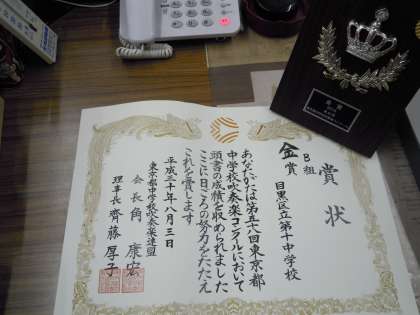 賞状
B組
金賞
目黒区立第十中学校
あなたたちは第五十八回東京都
中学校吹奏楽コンクールにおいて
頭書の成績を収められました
ここに日ごろの努力をたたえ
これを賞します
平成三十年八月三日
東京都中学校吹奏楽連盟
会長 角 康宏
理事長 齊藤厚子